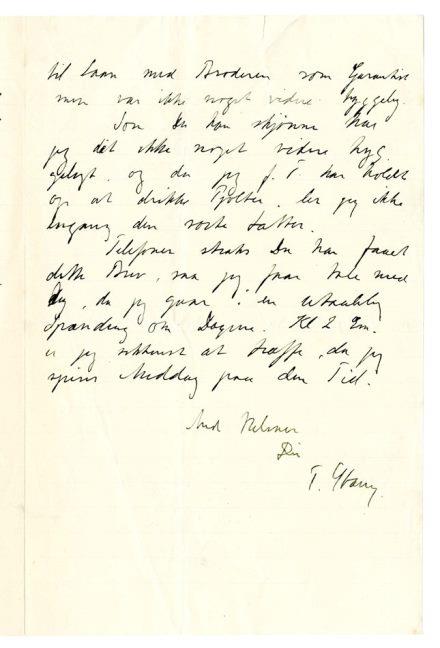 til Laan med Broderen som Garantist
men var ikke noget videre hyggelig.
Som Du kan skjønne har
jeg det ikke noget videre hyg
geligt, og da jeg f. T. har holdt
op at drikke Pjolter, ler jeg ikke
engang den
Telefoner straks Du har faaet
dette Brev, saa jeg faar tale med
Dig, da jeg gaar i en
Spænding om Dagene. Kl 2 Em.
er jeg sikkrest at træffe, da jeg
spiser Middag paa den Tid.
Med Hilsner
Din
T.